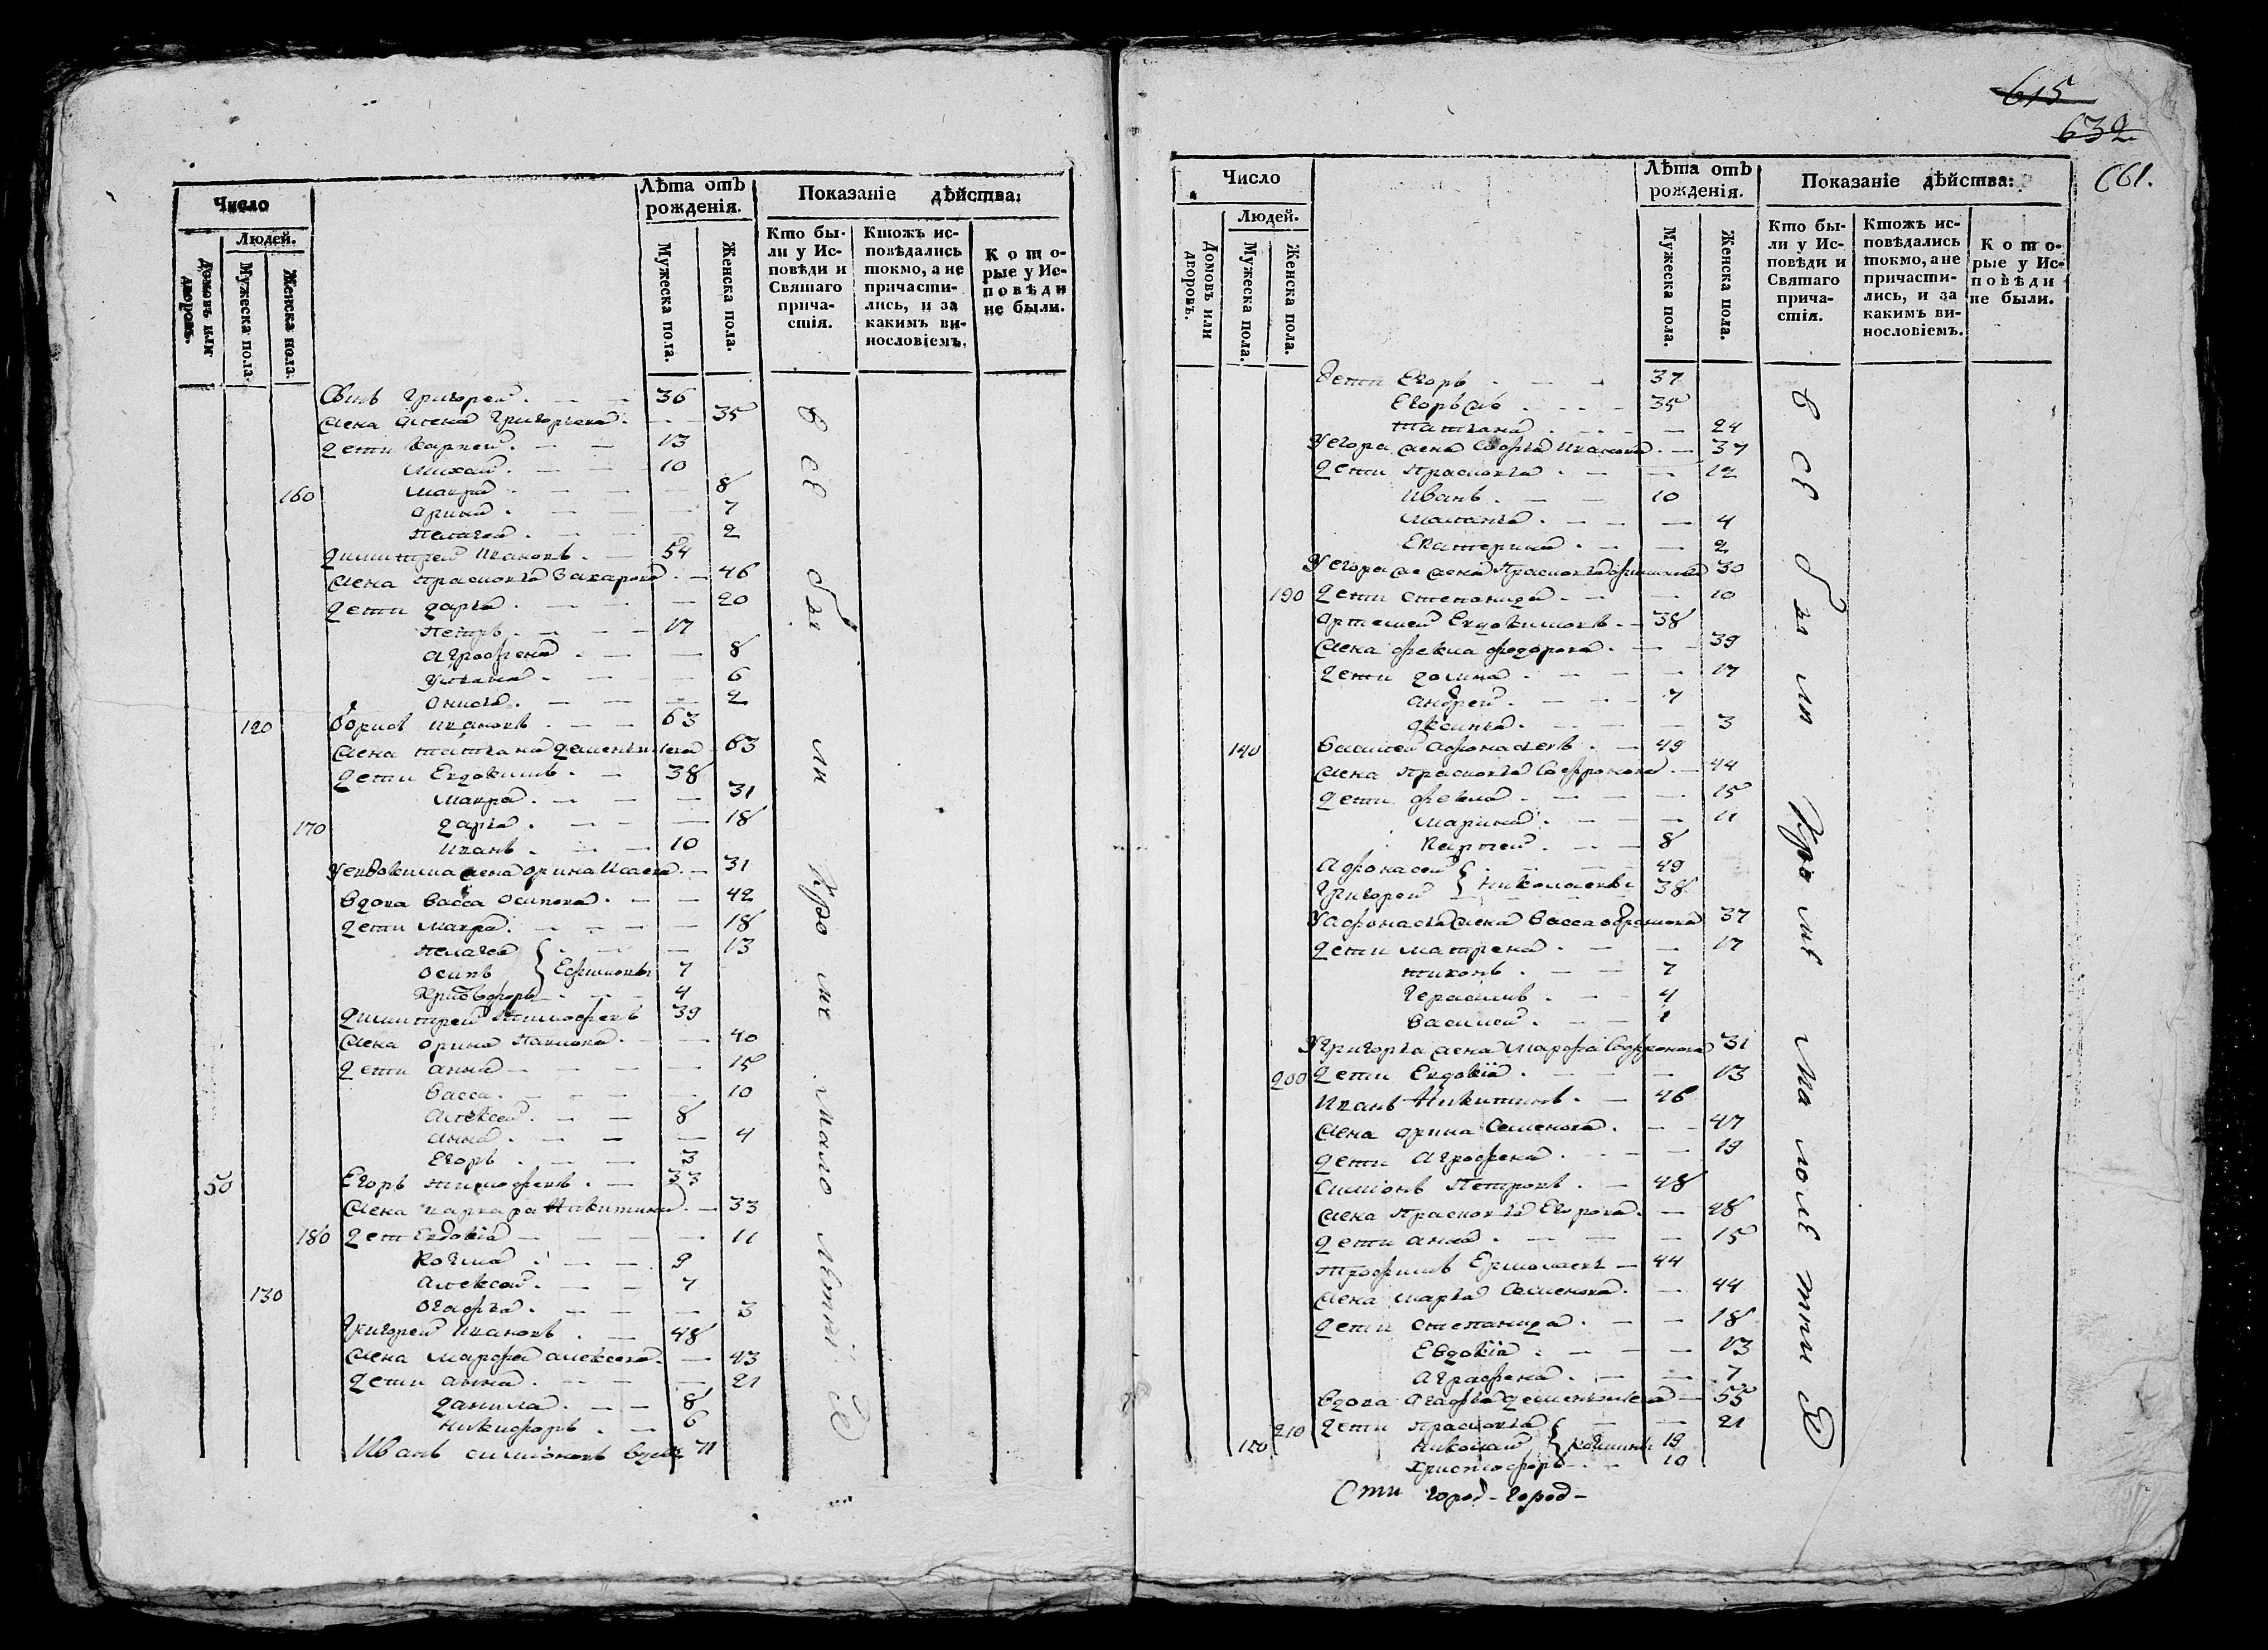 Число
Людей.
Домовъ или дворовъ.
Мужеска пола.
Женска пола.
Лѣта отъ рожденія.
Мужеска пола.
Женска пола.
Показаніе дѣйства:
Кто бы-
ли у Ис-
повѣди и
Святаго
прича-
стія.
Ктожъ ис-
повѣдались
токмо, а не
причасти-
лись, и за
какимъ ви-
нословіемъ.
Кото-
рые у Ис-
повѣди
не были.
Сынъ Григорей 36
Жена Григорьева 35
дети Карпей 13
Михай 10
160 Макра 8
Орина 7
Пелагея 2
Димитрей Ивановъ 54
Жена Прасковья Захарова 46
дети дарья 20
Петръ 17
Аграфена 8
Ульяна 6
2
120 Борисъ Ивановъ 63
Жена Татьяна Дементьева 63
дети Евдокимъ 38
Макра 31
170 дарья 18
Иванъ 10
У Евдокима жена Орина Исаева 31
Вдова Васса Осипова 42
дети Макра 18
Пелагея 13
Осипъ Ефимовы 7
Христофоръ 4
Димитрей Тимофеевъ 39
Жена Орина Павлова 40
дети Анна 15
Васса 10
Алексей 8
Анна 4
Егоръ 3
50 Егоръ Тимофеевъ 33
Жена Варвара Никитина 33
180 дети Евдокія 11
Козма 9
130 Алексей 7
Огафья 3
Григорей Ивановъ 48
Жена Марфа Алексеева 43
дети Анна 21
Данила 8
Никифоръ 6
Иванъ Симіоновъ вдовъ 71
всѣ были кроме малолетныхъ
615
632
661.
Число
Людей.
Домовъ или дворовъ.
Мужеска пола.
Женска пола.
Лѣта отъ рожденія.
Мужеска пола.
Женска пола.
Показаніе дѣйства:
Кто бы-
ли у Ис-
повѣди и
Святаго
прича-
стія.
Ктожъ ис-
повѣдались
токмо, а не
причасти-
лись, и за
какимъ ви-
нословіемъ.
Кото-
рые у Ис-
повѣди
не были.
дети Егоръ 37
Егоръ же 35
Татьяна 24
У Егора жена Софья Иванова 37
дети Прасковья 12
Иванъ 10
Маланья 4
Екатерина 2
У Егора же жена Прасковья 30
190 дети Степанида 10
Артемей Евдокимовъ 38
Жена Фекла Федорова 39
дети Домна 17
Андрей 7
Аксинья 3
140 Василей Афонасьевъ 49
Жена Прасковья Софронова 44
дети Фекла 15
Марина 11
8
Афонасей 49
Григорей Николаевы 38
У Афонасья жена Васса Абрамова 37
дети Матрена 17
Тихонъ 7
Герасимъ 4
Василей 1
У Григорья жена Марфа Софронова 31
200 дети Евдокія 13
Иванъ Никитинъ 46
Жена Орина Семенова 47
дети Аграфена 19
Симіонъ Петровъ 48
Жена Прасковья Егорова 48
дети Анна 15
Трофимъ Ермолаевъ 44
Жена Марья Семенова 44
дети Степанида 18
Евдокія 13
Аграфена 7
Вдова Агафья Дементьева 55
210 дети Прасковья 21
150 Николай Козмины 19
Христофоръ 10
всѣ были кромѣ малолѣтныхъ